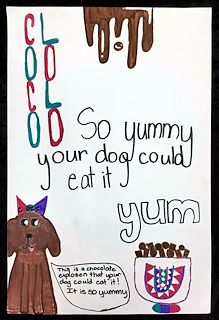 COCO
LOLO
So yummy
your dog could
eat it
yum
This is a chocolate
explosen that your
dog could eat it!
It is so yummy